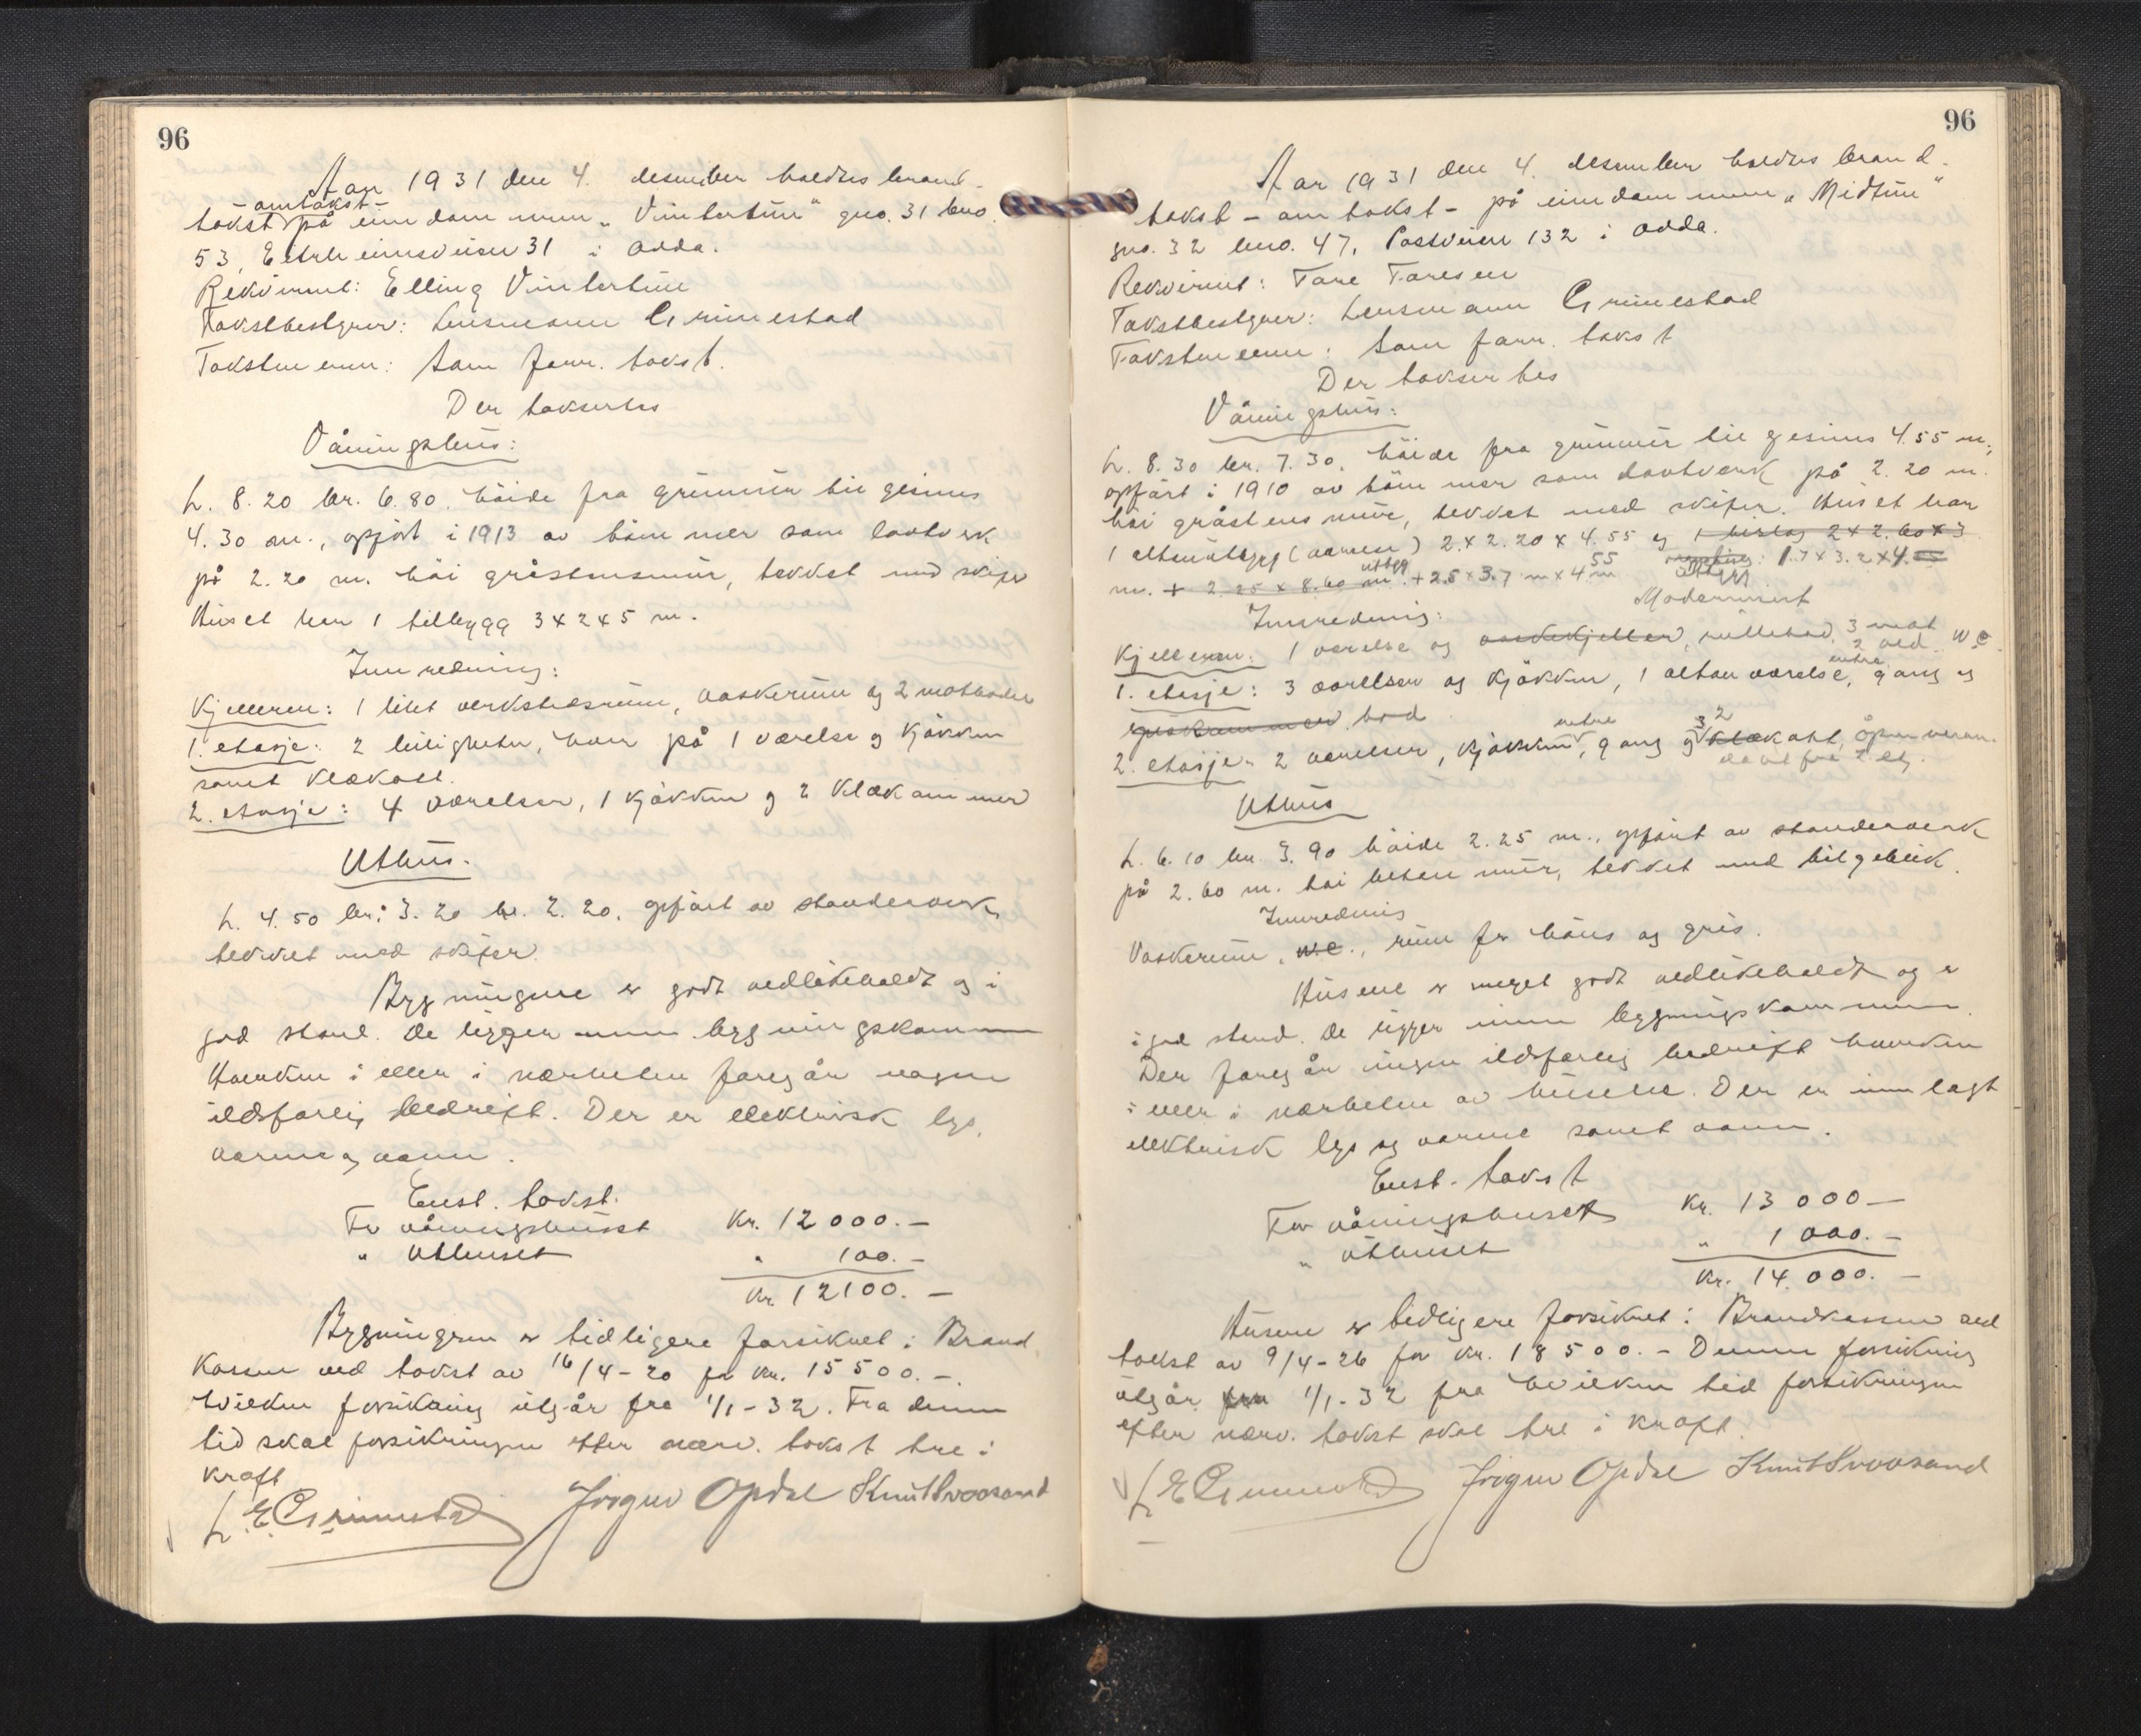 96
Aar 1931 den 4. desember holdtes brand-
takst -omtakst- på eiendommen „Vintertun" gno. 31 bno.
53, Eitrheimsveien 31 i Odda.
Rekvirent: Elling Vintertun
Takstbestyrer: Lensmann Grimestad
Takstmenn: Som forr. takst.
Der takseertes
Våningshus:
L. 8.20 br. 6.80. höide fra grunnmur til gesims
4.30 m., opfört i 1913 av tömmer som laftverk
på 2.20 m. höi gråstensmur, tekket med skifer
Huset har 1 tilbygg 3x2x5 m.
Innredning:
Kjelleren: 1 litet verkstedsrum, vaskerum og 2 matboder
1. etasje: 2 leiligheter, hver på 1 værelse og kjökken
samt klækott.
2. etasje: 4 værelser, 1 kjökken og 2 klækammer
Uthus.
L. 4.50 br. 3.20 hö. 2.20, opfört av standerverk,
tekket med skifer.
Bygningene er godt vedlikeholdt og i
god stand. De ligger innen bygningskommunen
Hverken i eller i nærheten foregår nogen
ildsfarlig bedrift. Der er elektrisk lys,
varme og vann.
Enst. takst.
For våningshuset Kr. 12000.-
" uthuset " 100.-
Kr. 12100.-
Bygningen er tidligere forsikret i Brand-
kassen ved takst av 16/4-20 for kr. 15500.-.
Hvilken forsikring utgår fra 1/1-32. Fra denne
tid skal forsikringen efter nærv. takst tre i
kraft
L. E. Grimestad Trygve Opdal Knut Svoosand
96
Aar 1931 den 4. desember holdtes brand-
takst - omtakst - på eiendommen „Midtun"
gno. 32 bno. 47, Postveien 132 i Odda.
Rekvirent: Tore Toresen
Takstbestyrer: Lensmann Grimestad
Takstmenn: Som forr. takst
Der takseertes
Våningshus:
L. 8.30 br. 7.30. höide fra grunnmur til gesims 4.55 m,
opfört i 1910 av tömmer som laftverk på 2.20 m.
höi gråstens mur, tekket med skifer. Huset har
1 altanutbygg (værelse) 2.x2.20x4.55 og 1 bislag 2x2.60x3
m. + 2.25 x 8.60 m utbygg + 2.5 x 3.7 m x 4 55 m utbygg: 1.7x3.2x4.
Modernisert
Innredning:
Kjelleren: 1 værelse og vaskekjeller, rullebod, 3 mat 2 ved. W.C.
1. etasje: 3 værelser og kjökken, 1 altan værelse, entre gang og
spiskammer bod
2. etasje: 2 værelser, kjökken, entre gang og 3 2 klækott, åpen veran-
da ut fra 2 etg.
Uthus
L. 6.10 br. 3.90 höide 2.25 m., opfört av standerverk
på 2.60 m. höi beton mur, tekket med bölgeblikk.
Innredning
Vaskerum, W.C., rum for höns og gris.
Husene er meget godt vedlikeholdt og er
i god stand. De ligger innen bygningskommunen.
Der foregår ingen ildsfarlig bedrift hverken
i eller i nærheten av husene. Der er innlagt
elektrisk lys og varme samt vann.
Enst. takst
For våningshuset Kr. 13000-
" uthuset " 1000.-
Kr. 14.000.-
Husene er tidligere forsikret i Brandkassen ved
takst av 9/4-26 for kr. 18500.- Denne forsikring
utgår fra 1/1-32 fra hvilken tid forsikringen
efter nærv. takst skal tre i kraft.
L. E. Grimestad Trygve Opdal Knut Svoosand